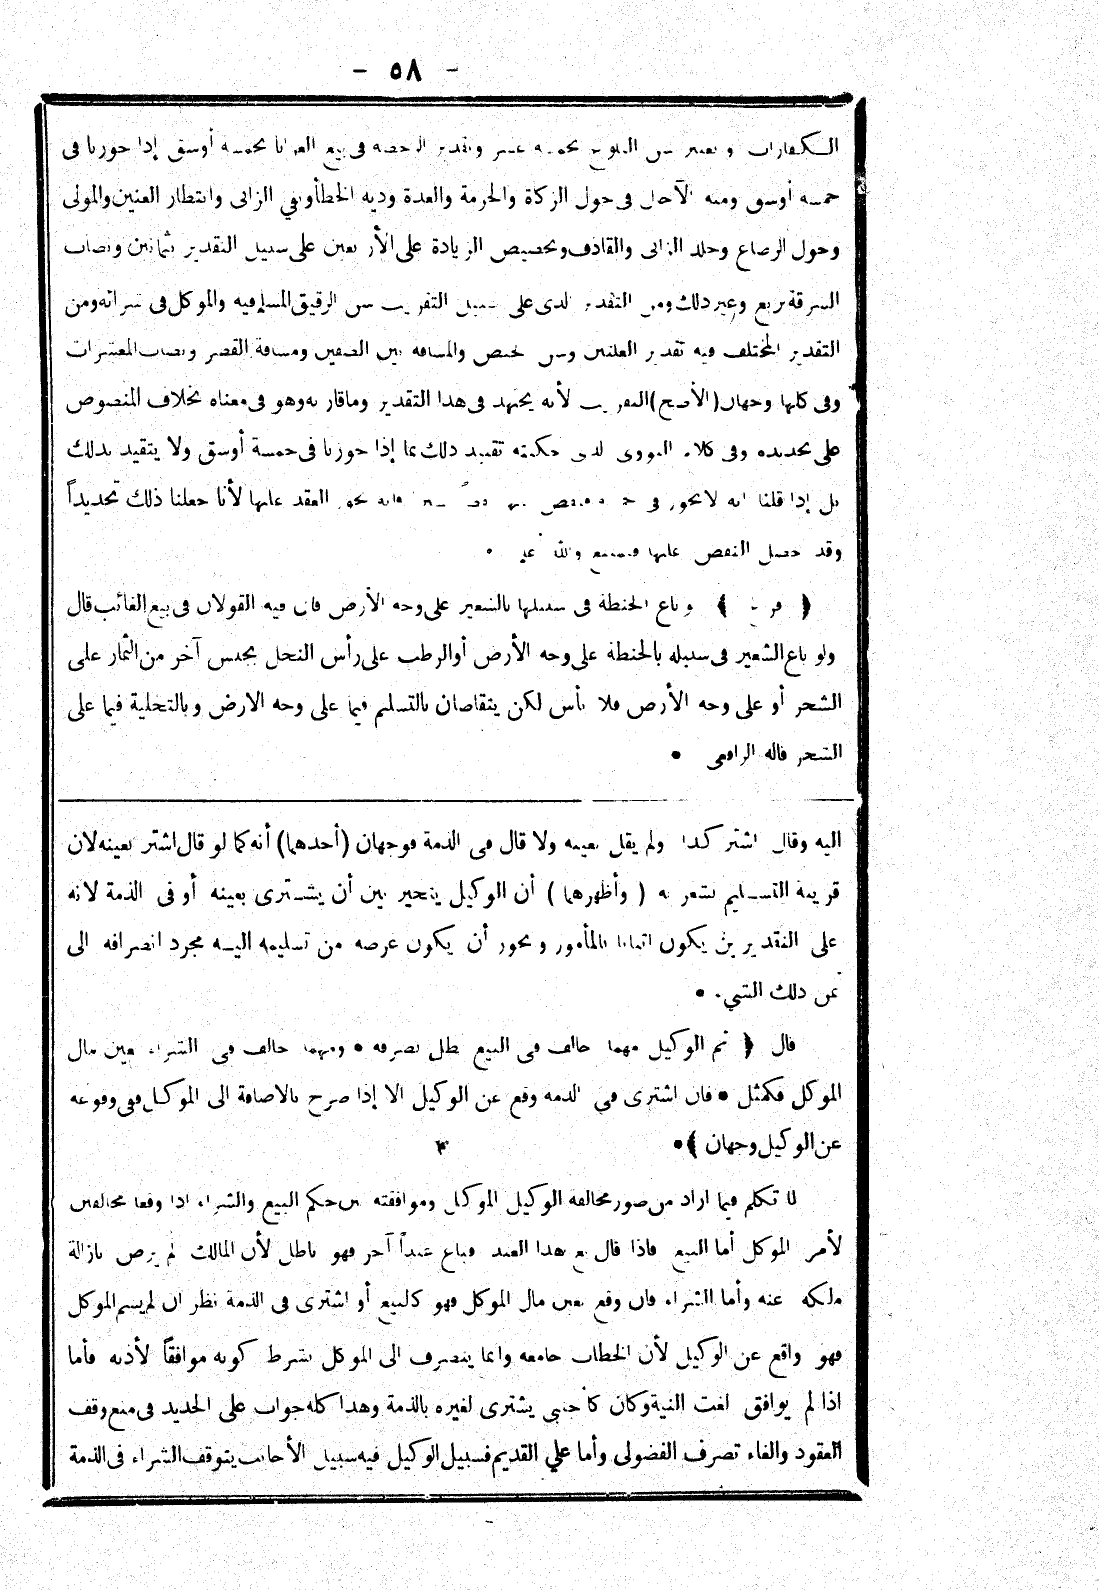 - ٥٨ -
الكفارات وتقدير سن البلوغ بخمسة عشر وتقدير الرخصة فى بيع العرايا بخمسة أوسق إذا جوزنا فى
خمسة أوسق ومنه الآجال فى حول الزكاة والجزية والعدة ودية الخطأ ونفي الزانى وانتظار العنين والمولى
وحول الرضاع وجلد الزانى والقاذف وتخصيص الزيادة على الأربعين على سبيل التقدير بثمانين ونصاب
السرقة بربع وغير ذلك ومن التقدير الذى على سبيل التقريب سن الرقيق المسلم فيه والموكل فى شرائه ومن
التقدير المختلف فيه تقدير القلتين وسن الحيض والمسافة بين الصفين ومسافة القصر ونصاب المعشرات
وفى كلها وجهان (الأصح) التقريب لأنه يجتهد فى هذا التقدير وما قاربه وهو فى معناه بخلاف المنصوص
على تحديده وفى كلام النووى الذى حكيته تقييد ذلك بما إذا جوزنا فى خمسة أوسق ولا يتقيد بذلك
بل إذا قلنا انه لا يجوز فى فنقص العقد عليها لأنا جعلنا ذلك تحديداً
وقد حصل النقص عليها والله •
﴿ فرع ﴾ لو باع الحنطة فى سنبلها بالشعير على وجه الأرض فان فيه القولان فى بيع الغائب قال
ولو باع الشعير فى سنبله بالحنطة على وجه الأرض أو الرطب على رأس النخل بجنس آخر من الثمار على
الشجر أو على وجه الأرض فلا بأس لكن يتقابضان بالتسليم فيما على وجه الارض وبالتخلية فيما على
الشجر قاله الرافعى •
اليه وقال اشتر كذا ولم يقل بعينه ولا قال فى الذمة فوجهان (أحدهما) أنه كما لو قال اشتر بعينه لان
قرينة التسليم تشعر به ( وأظهرهما ) أن الوكيل يتخير بين أن يشترى بعينه أو فى الذمة لانه
على التقديرين يكون اتيانا بالمأمور ويجوز أن يكون غرضه من تسليمه اليه مجرد انصرافه الى
ثمن ذلك الشىء •
قال ﴿ ثم الوكيل مهما خالف فى البيع بطل تصرفه • ومهما خالف فى الشراء بعين مال
الموكل فكمثل • فان اشترى في الذمة وقع عن الوكيل الا إذا صرح بالاضافة الى الموكل ففى وقوعه
عن الوكيل وجهان ﴾ •
لما تكلم فيما اراد من صور مخالفة الوكيل الموكل وموافقته بين حكم البيع والشراء اذا وقعا مخالفين
لأمر الموكل أما البيع فاذا قال بع هذا العبد فباع عبداً آخر فهو باطل لأن المالك لم يرض بازالة
ملكه عنه وأما الشراء فان وقع بعين مال الموكل فهو كالبيع أو اشترى فى الذمة نظر ان لم يسم الموكل
فهو واقع عن الوكيل لأن الخطاب جامعه وانما ينصرف الى الموكل بشرط كونه موافقاً لأذنه فأما
اذا لم يوافق لغت النية وكان كأجنبي يشترى لغيره بالذمة وهذا كله جواب على الجديد فى منع وقف
العقود والغاء تصرف الفضولى وأما علي القديم فسبيل الوكيل فيه سبيل الأجانب يتوقف الشراء فى الذمة